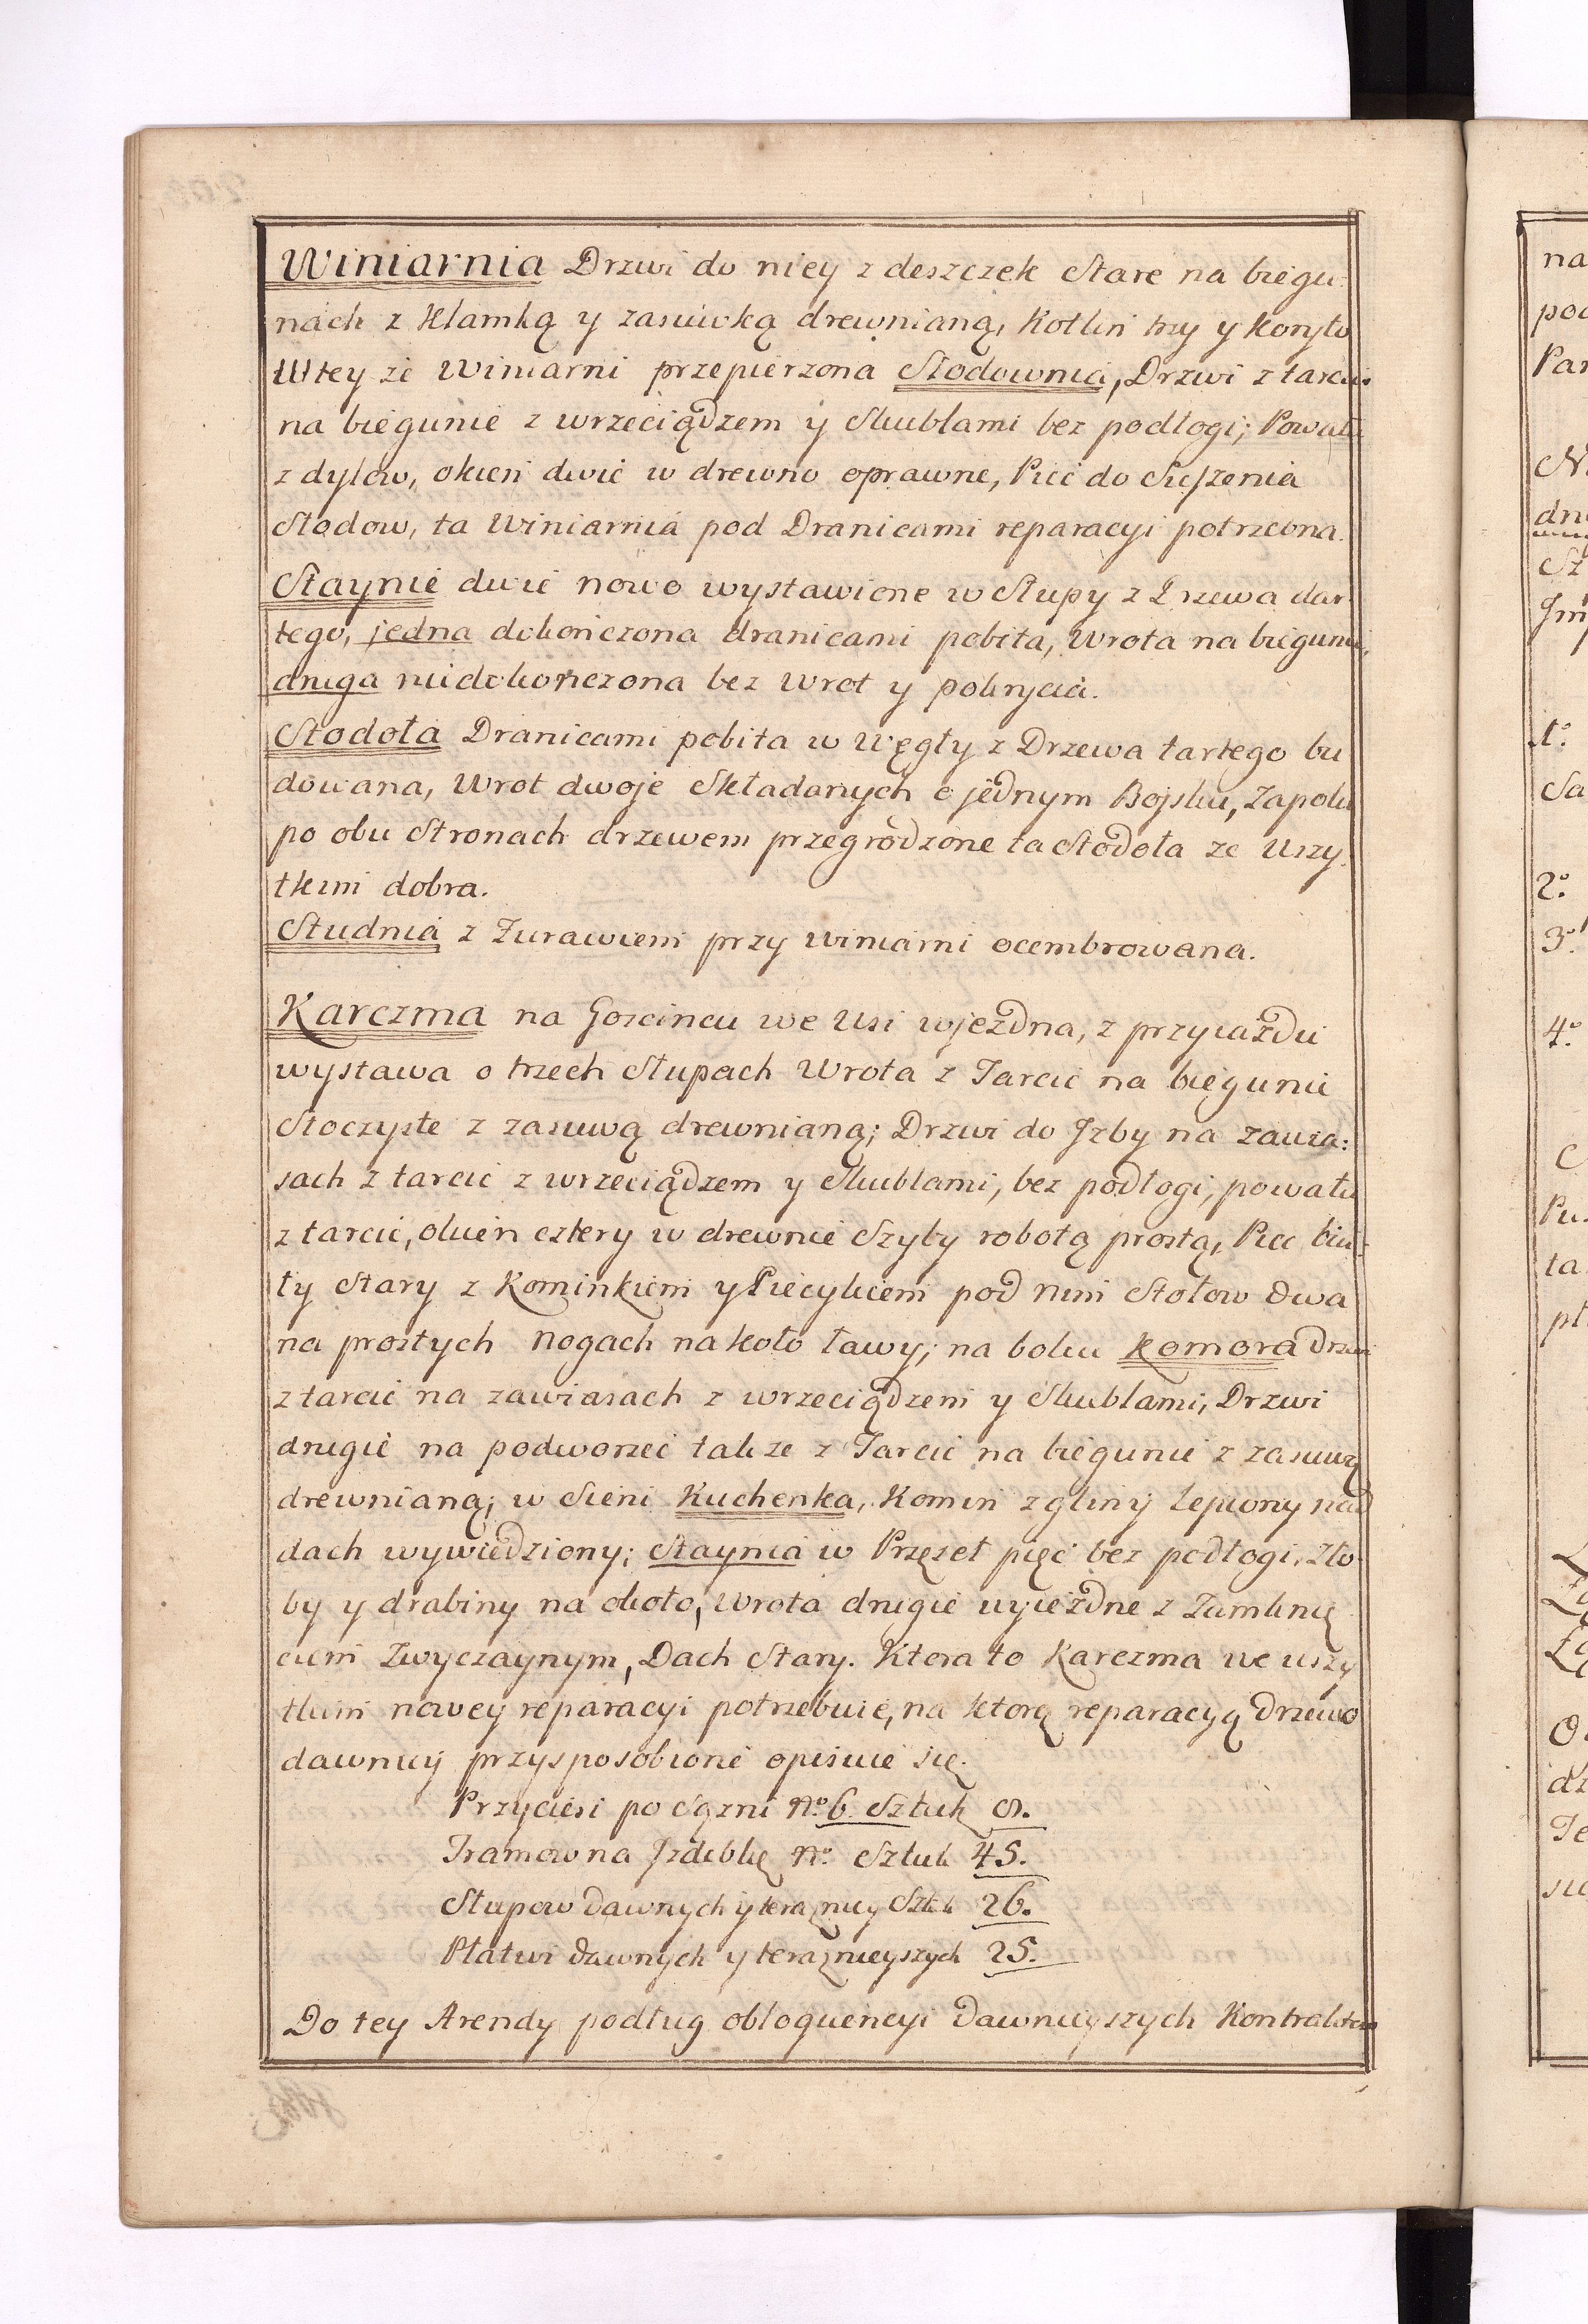 Winiarnia Drzwi do niey z deszczek Stare na biegu-
nach z Klamką y zasuwką drewnianą, Kotlin trzy y Koryto
W tey ze Winiarni przepierzona Słodownia, Drzwi z tarcic
na biegunie z wrzeciądzem y Skublami bez podłogi; Powała
z dylow, okien dwie w drewno oprawne, Piec do Suszenia
Słodow, ta Winiarnia pod Dranicami reparacyi potrzebna.
Staynie dwie nowo wystawione w Słupy z Drzewa dar-
tego, jedna dokończona dranicami pobita, Wrota na biegunie,
druga niedokończona bez Wrot y pokrycia.
Stodoła Dranicami pobita w Węgły z Drzewa tartego bu
dowana, Wrot dwoje Składanych o jednym Bojsku, Zapola
po obu Stronach drzewem przegrodzone ta Stodoła ze Wszy-
tkim dobra.
Studnia z Zurawiem przy Winiarni ocembrowana.
Karczma na Goscincu we Wsi wjezdna, z przyiazdu
wystawa o trzech Słupach Wrota z Tarcic na biegunie
Stoczyste z zasuwą drewnianą; Drzwi do Jzby na zawia:
sach z tarcic z wrzeciądzem y Skublami, bez podłogi, powała
z tarcic, okien cztery w drewnie Szyby robotą prostą, Piec bia-
ły Stary z Kominkiem y Piecykiem pod nim Stołow dwa
na prostych nogach na koło ławy; na boku Komora drzwi
z tarcic na zawiasach z wrzeciądzem y Skublami, Drzwi
drugie na podworzec takze z Tarcic na biegunie z zasuwą
drewnianą; w Sieni Kuchenka, Komin z gliny lepiony nad
dach wywiedziony; Staynia w Przęzeł pięć bez podłogi, Zło-
by y drabiny na około, Wrota drugie wyiezdne z Zamknię
ciem Zwyczaynym, Dach Stary. Ktora to Karczma we wszy
tkim nowey reparacyi potrzebuie, na ktorą reparacyą drzewo
dawniey przysposobione opisuie się.
Przyciesi po Sązni No. 6 Sztuk 8.
Tramow na Jzdebkę No. Sztuk 45.
Słupow dawnych y terazniey Sztuk 26.
Płatwi dawnych y teraznieyszych 25.
Do tey Arendy podług obloquencyi dawnieyszych Kontraktow